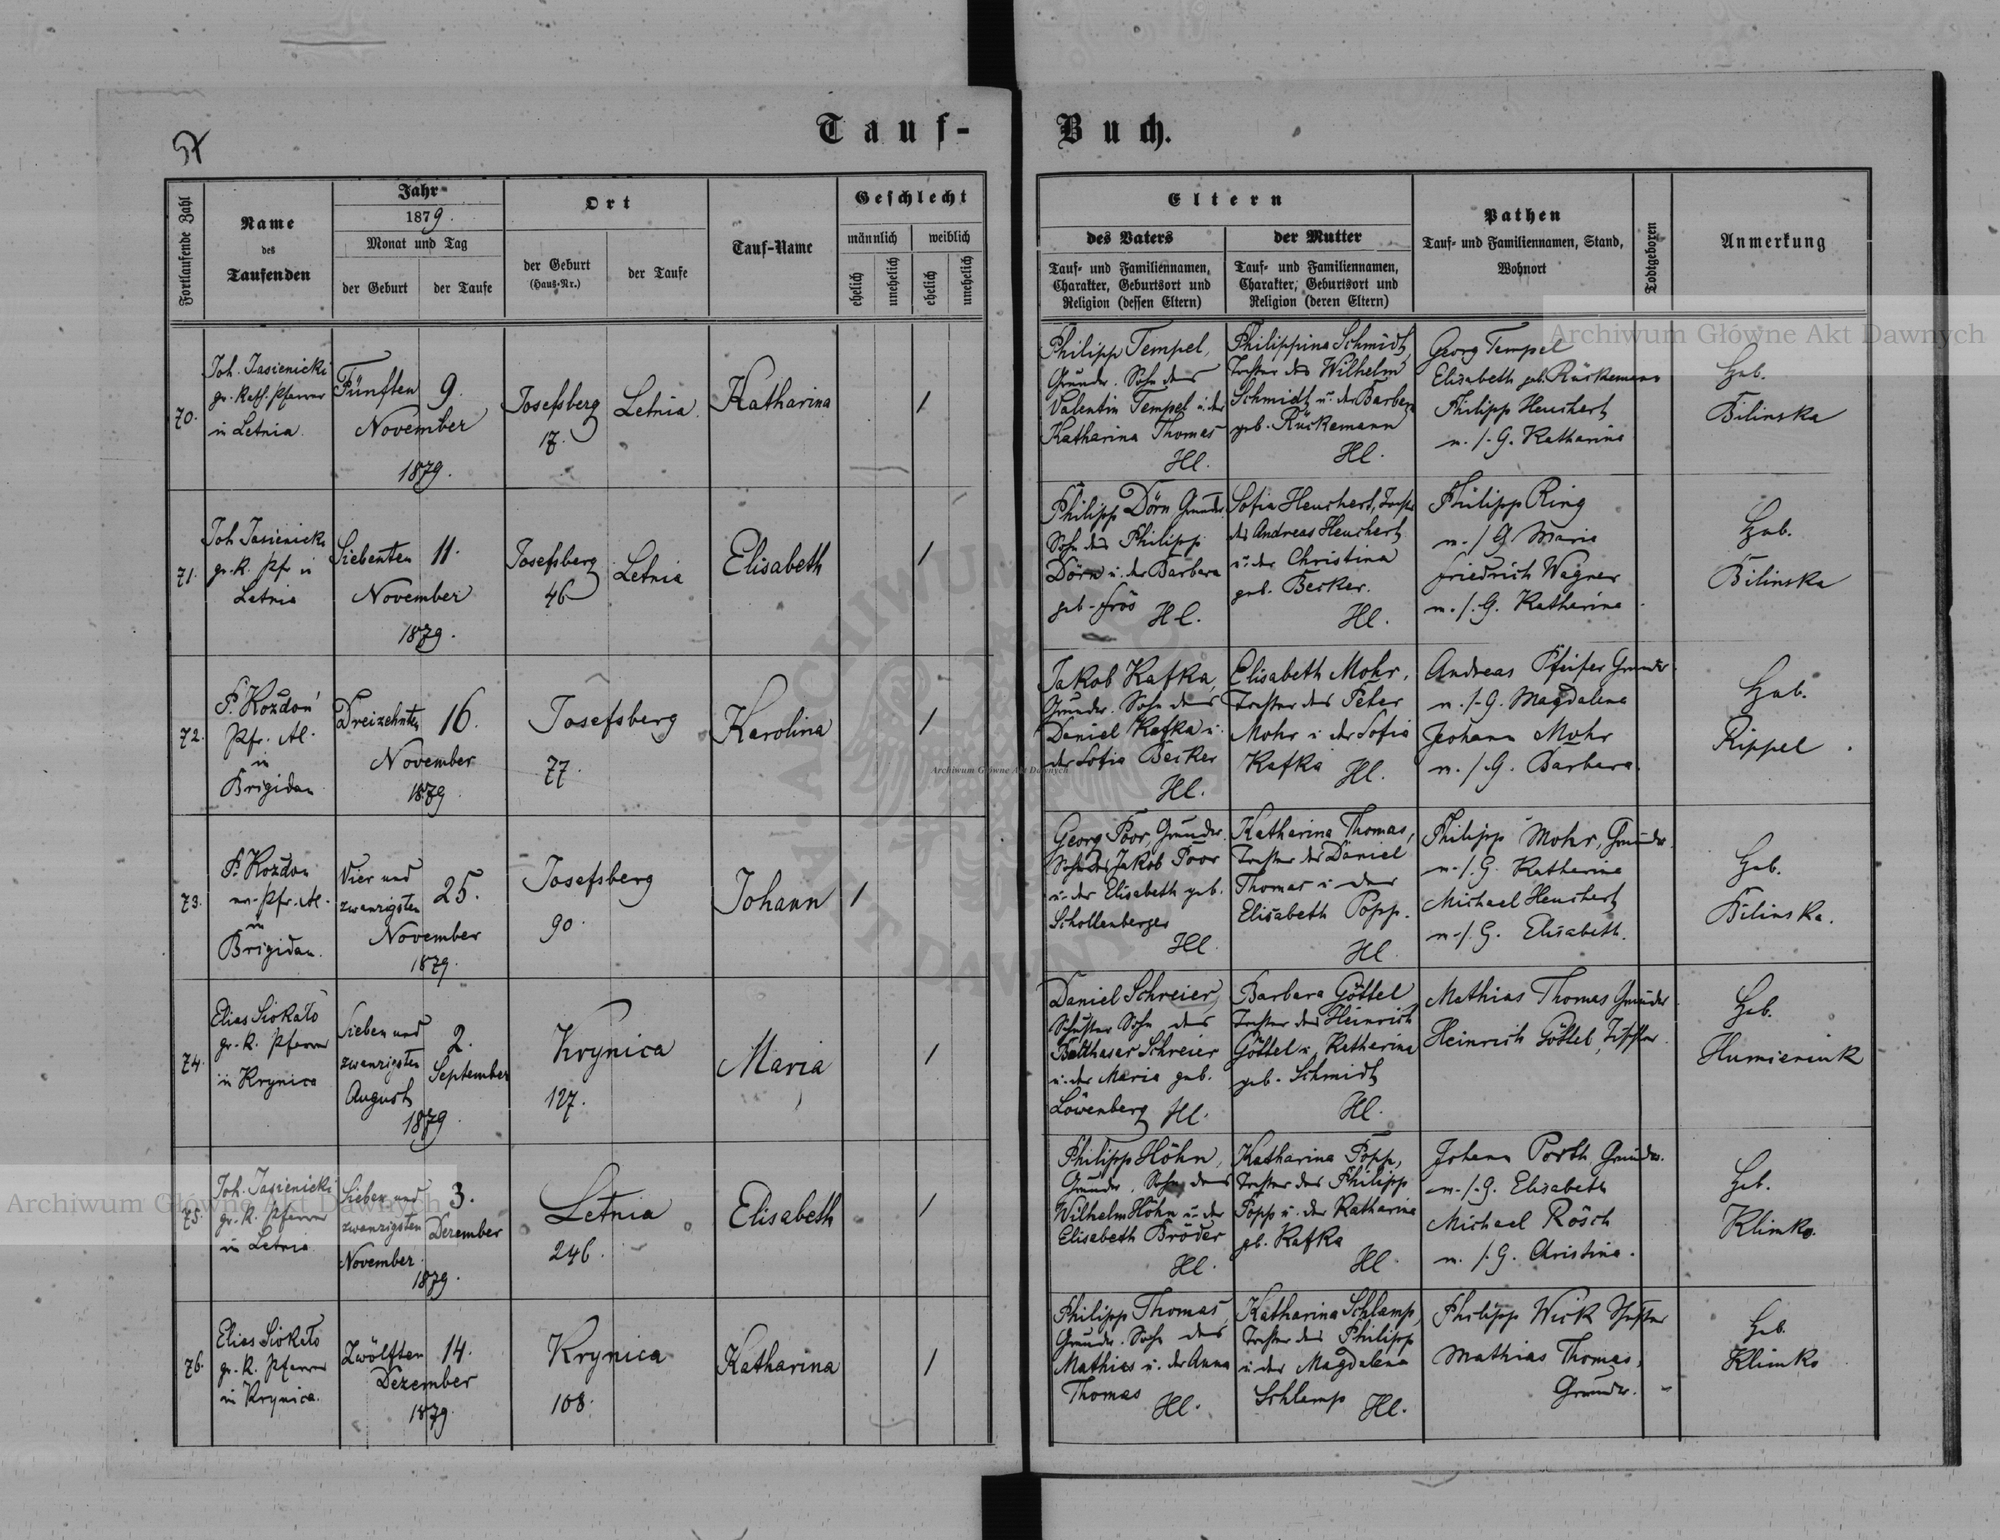 57
Tauf-Buch.
Fortlaufende Zahl
Name
des
Taufenden
Jahr
1879.
Monat und Tag
der Geburt
der Taufe
Ort
der Geburt
(Haus-Nr.)
der Taufe
Tauf-Name
Geschlecht
männlich
weiblich
ehelich
unehelich
ehelich
unehelich
Eltern
des Vaters
Tauf- und Familiennamen,
Charakter, Geburtsort und
Religion (dessen Eltern)
der Mutter
Tauf- und Familiennamen,
Charakter, Geburtsort und
Religion (deren Eltern)
Pathen
Tauf- und Familiennamen, Stand,
Wohnort
Todtgeboren
Anmerkung
70.
Joh. Jasienicki
gr. kath. Pfarrer
in Letnia.
Fünften
9.
November
1879.
Josefsberg
17.
Letnia
Katharina
/
Philipp Tempel,
Grundw. Sohn des
Valentin Tempel u. der
Katharina Thomas
Hl.
Philippina Schmidt,
Tochter des Wilhelm
Schmidt u. der Barbara
geb. Rückemann
Hl.
Georg Tempel
Elisabeth geb. Rückemann
Philipp Heuchert
m. /. G. Katharina
Heb.
Bilinska
71.
Joh. Jasienicki
gr. k. Pfr. in
Letnia
Siebenten
11.
November
1879.
Josefsberg
46
Letnia
Elisabeth
/
Philipp Dörn, Grundw.
Sohn des Philipp
Dörn u. der Barbara
geb. Frös
Hl.
Sofia Heuchert, Tochter
des Andreas Heuchert
u. der Christina
geb. Becker.
Hl.
Philipp Ring
m. /. G. Maria
Friedrich Wagner
m. /. G. Katharina
Heb.
Bilinska
72.
P. Kozdoń
Pfr. Al.
in
Brigidau
Dreizehnten
16.
November
1879
Josefsberg
77.
Karolina
/
Jakob Kafka,
Grundw. Sohn des
Daniel Kafka u.
der Sofia Becker
Hl.
Elisabeth Mohr,
Tochter des Peter
Mohr u. der Sofia
Kafka
Hl.
Andreas Pfeifer Grundw.
m. /. G. Magdalena
Johann Mohr
m. /. G. Barbara.
Heb.
Rippel.
73.
P. Kozdon
Pfr. Al.
in
Brigidau.
Vier und
zwanzigsten
25.
November
1879.
Josefsberg
90.
Johann
/
Georg Poor, Grundw.
Sohn des Jakob Poor
u. der Elisabeth geb.
Schollenberger
Hl.
Katharina Thomas,
Tochter des Daniel
Thomas u. der
Elisabeth Popp.
Hl.
Philipp Mohr, Grundw.
m. /. G. Katharina
Michael Heuchert
m. /. G. Elisabeth.
Heb.
Bilinska.
74.
Elias Siokało
gr. k. Pfarrer
in Krynica
Sieben und
zwanzigsten
August
2.
September
1879
Krynica
127.
Maria
/
Daniel Schreier,
Schuster Sohn des
Balthasar Schreier
u. der Maria geb.
Löwenberg
Hl.
Barbara Göttel
Tochter des Heinrich
Göttel u. Katharina
geb. Schmidt
Hl.
Mathias Thomas Grundw.
Heinrich Göttel, Tischler.
Heb.
Humieniuk
75.
Joh. Jasienicki
gr. k. Pfarrer
in Letnia
Sieben und
zwanzigsten
November
3.
Dezember
1879.
Letnia
246.
Elisabeth
/
Philipp Höhn,
Grundw. Sohn des
Wilhelm Höhn u. der
Elisabeth Bröder
Hl.
Katharina Popp,
Tochter des Philipp
Popp u. der Katharina
gb. Kafka
Hl.
Johann Porth, Grundw.
m. /. G. Elisabeth
Michael Rösch
m. /. G. Christina.
Heb.
Klimko.
76.
Elias Siokało
gr. k. Pfarrer
in Krynica.
Zwölften
14.
Dezember
1879.
Krynica
108.
Katharina
/
Philipp Thomas,
Grundw. Sohn des
Mathias u. der Anna
Thomas
Hl.
Katharina Schlamp,
Tochter des Philipp
u. der Magdalena
Schlamp
Hl.
Philipp Wick Schuster
Mathias Thomas,
Grundw.
Heb.
Klimko
Archiwum Główne Akt Dawnych
Archiwum Główne Akt Dawnych
Archiwum Główne Akt Dawnych